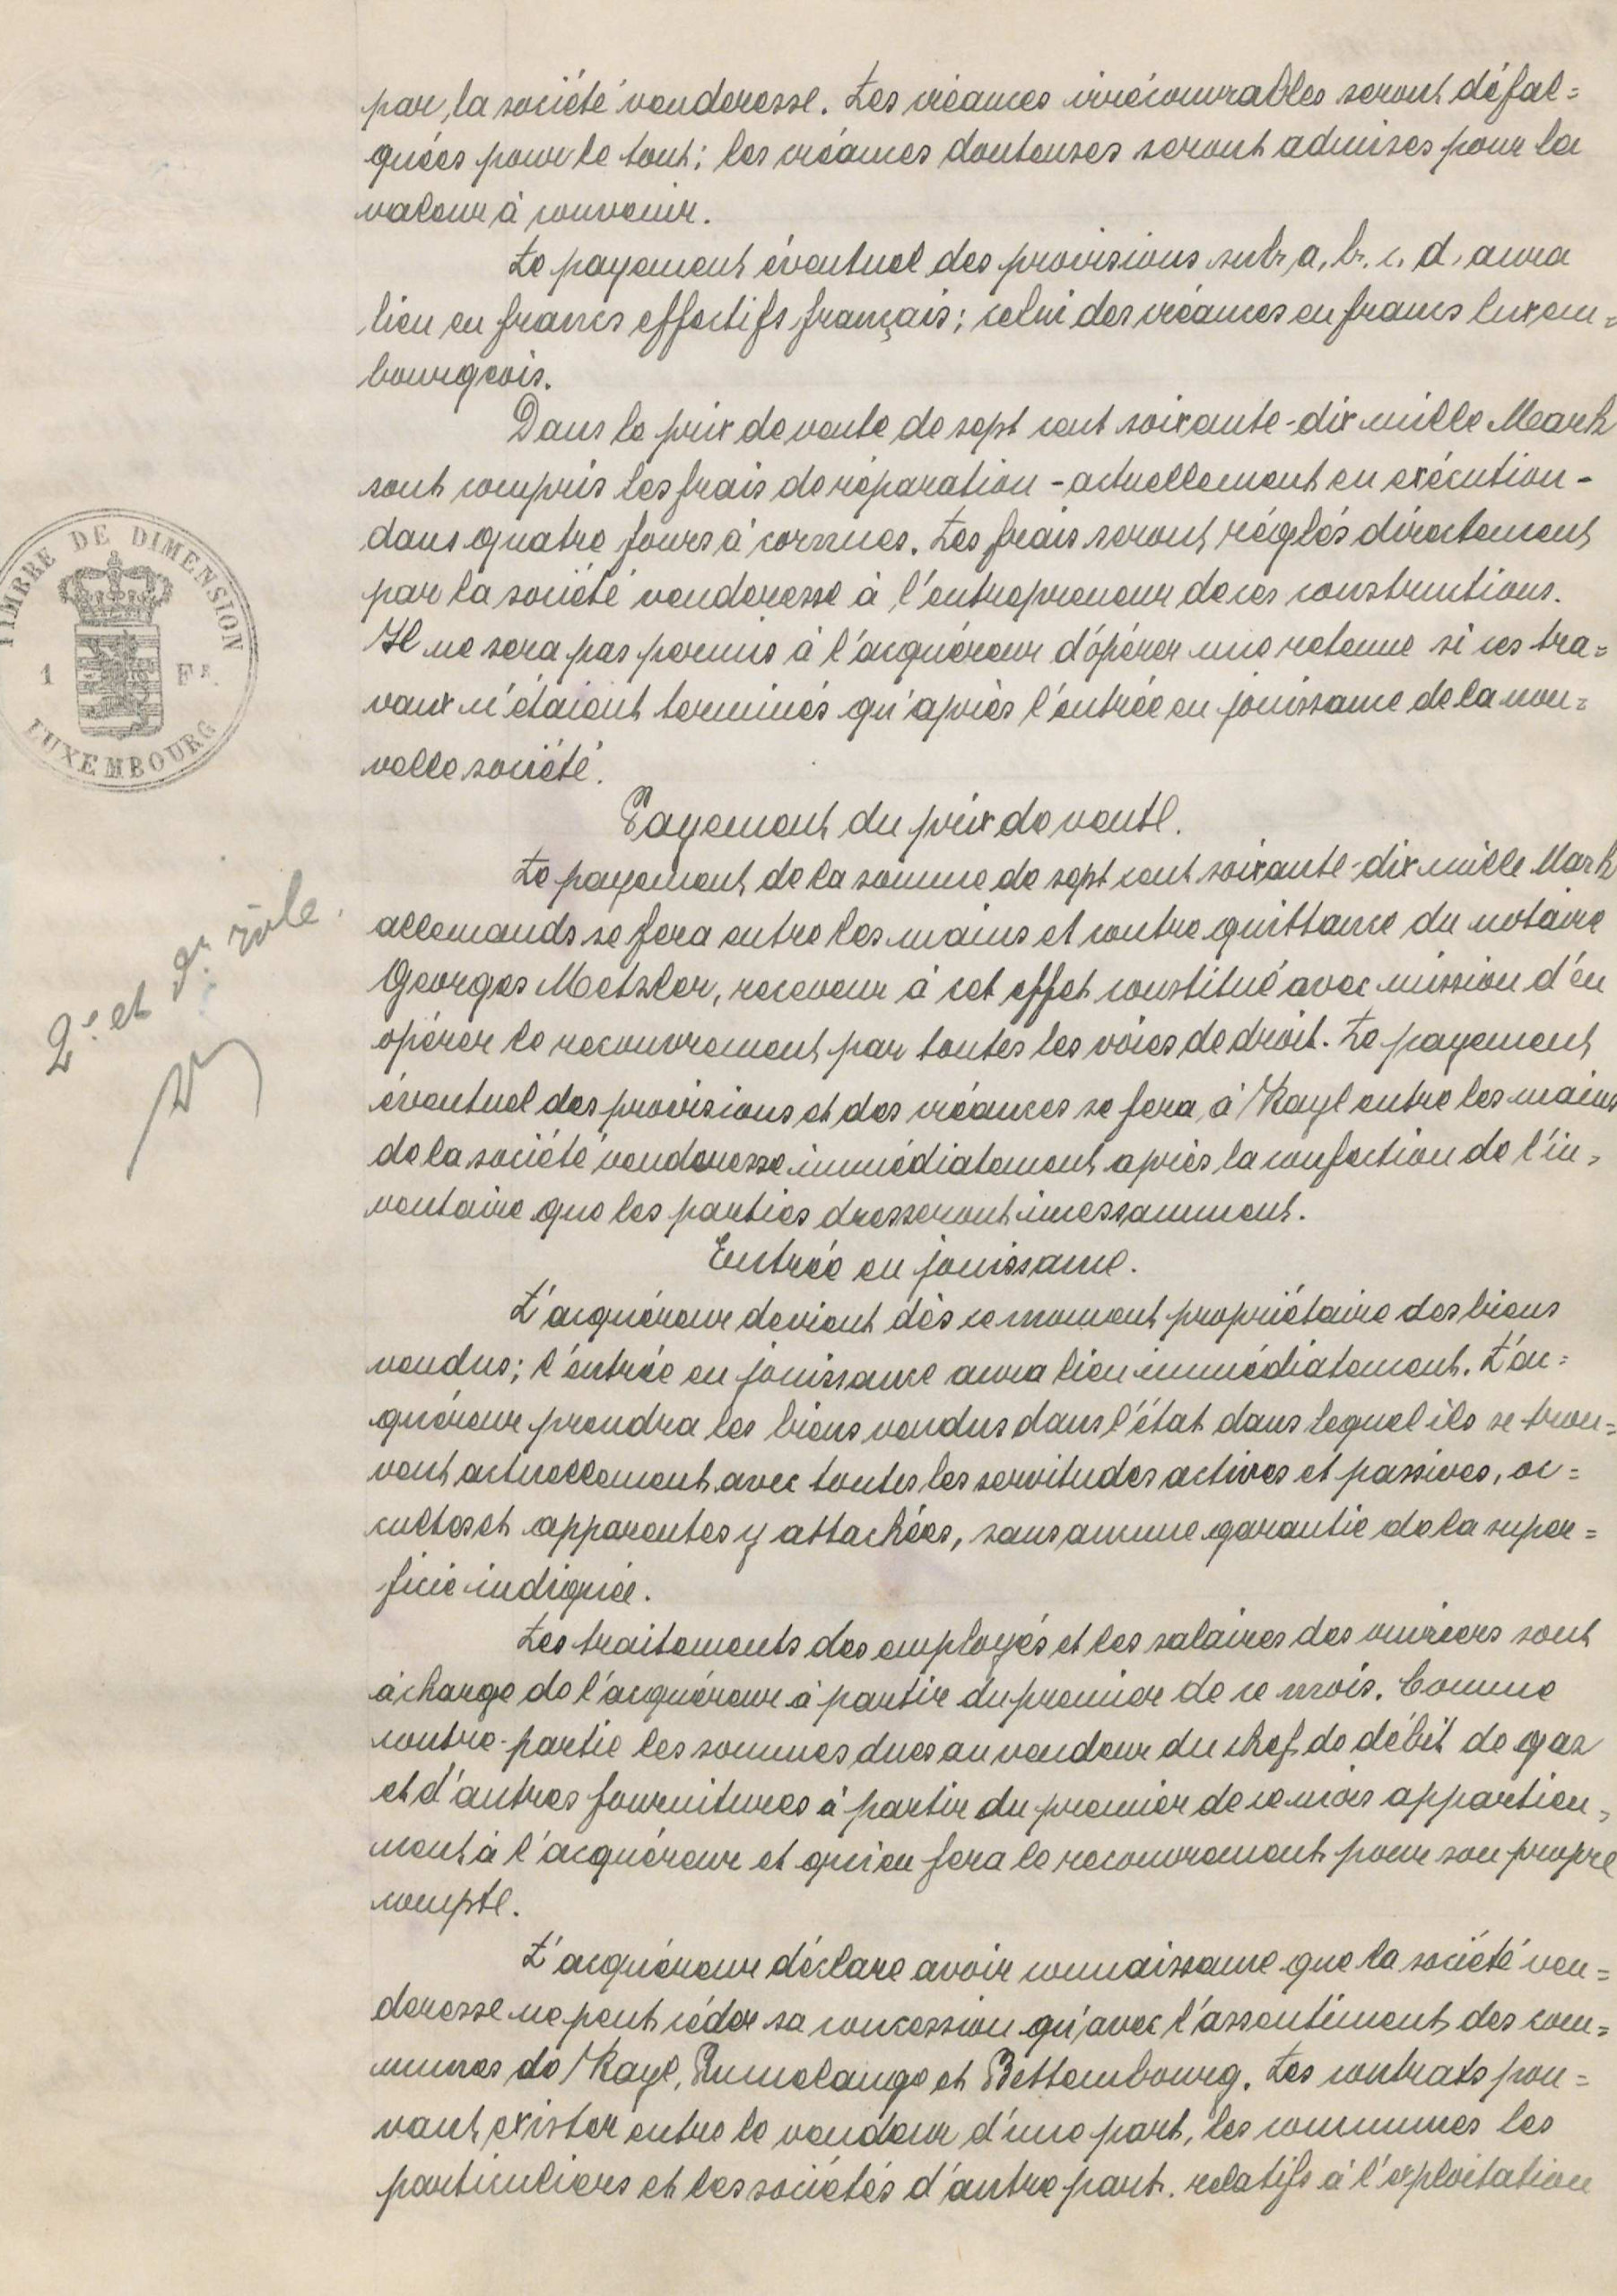 par la société venderesse. Les créances irrécouvrables seront défal=
quées pour le tout; les créances douteuses seront admises pour la
valeur à convenir.
Le payement éventuel des provisions sub a, b, c, d, aura
lieu en francs effectifs français; celui des créances en francs luxem=
bourgeois.
Dans le prix de vente de sept cent soixante-dix mille Mark
sont compris les frais de réparation - actuellement en exécution -
dans quatre fours à cornues. Les frais seront réglés directement
par la société venderesse à l'entrepreneur de ces constructions.
Il ne sera pas permis à l'acquéreur d'opérer une retenue si ces tra=
vaux n'étaient terminés qu'après l'entrée en jouissance de la nou=
velle société.
TIMBRE DE DIMENSION
1 FR.
LUXEMBOURG
Payement du prix de vente.
Le payement de la somme de sept cent soixante-dix mille Mark
allemands se fera entre les mains et contre quittance du notaire
Georges Metzler, receveur à cet effet constitué avec mission d'en
opérer le recouvrement par toutes les voies de droit. Le payement
éventuel des provisions et des créances se fera à Kayl entre les mains
de la société venderesse immédiatement après la confection de l'in=
ventaire que les parties dresseront incessamment.
2e et dr. rôle.
Entrée en jouissance.
L'acquéreur devient dès ce moment propriétaire des biens
vendus; l'entrée en jouissance aura lieu immédiatement. L'ac=
quéreur prendra les biens vendus dans l'état dans lequel ils se trou=
vent actuellement avec toutes les servitudes actives et passives, oc=
cultes et apparentes y attachées, sans aucune garantie de la super=
ficie indiquée.
Les traitements des employés et les salaires des ouvriers sont
à charge de l'acquéreur à partir du premier de ce mois. Comme
contre-partie les sommes dues au vendeur du chef de débit de gaz
et d'autres fournitures à partir du premier de ce mois appartien=
nent à l'acquéreur et qui en fera le recouvrement pour son propre
compte.
L'acquéreur déclare avoir connaissance que la société ven=
deresse ne peut céder sa concession qu'avec l'assentiment des com=
munes de Kayl, Rumelange et Bettembourg. Les contrats pou=
vant exister entre le vendeur d'une part, les communes les
particuliers et les sociétés d'autre part. relatifs à l'exploitation